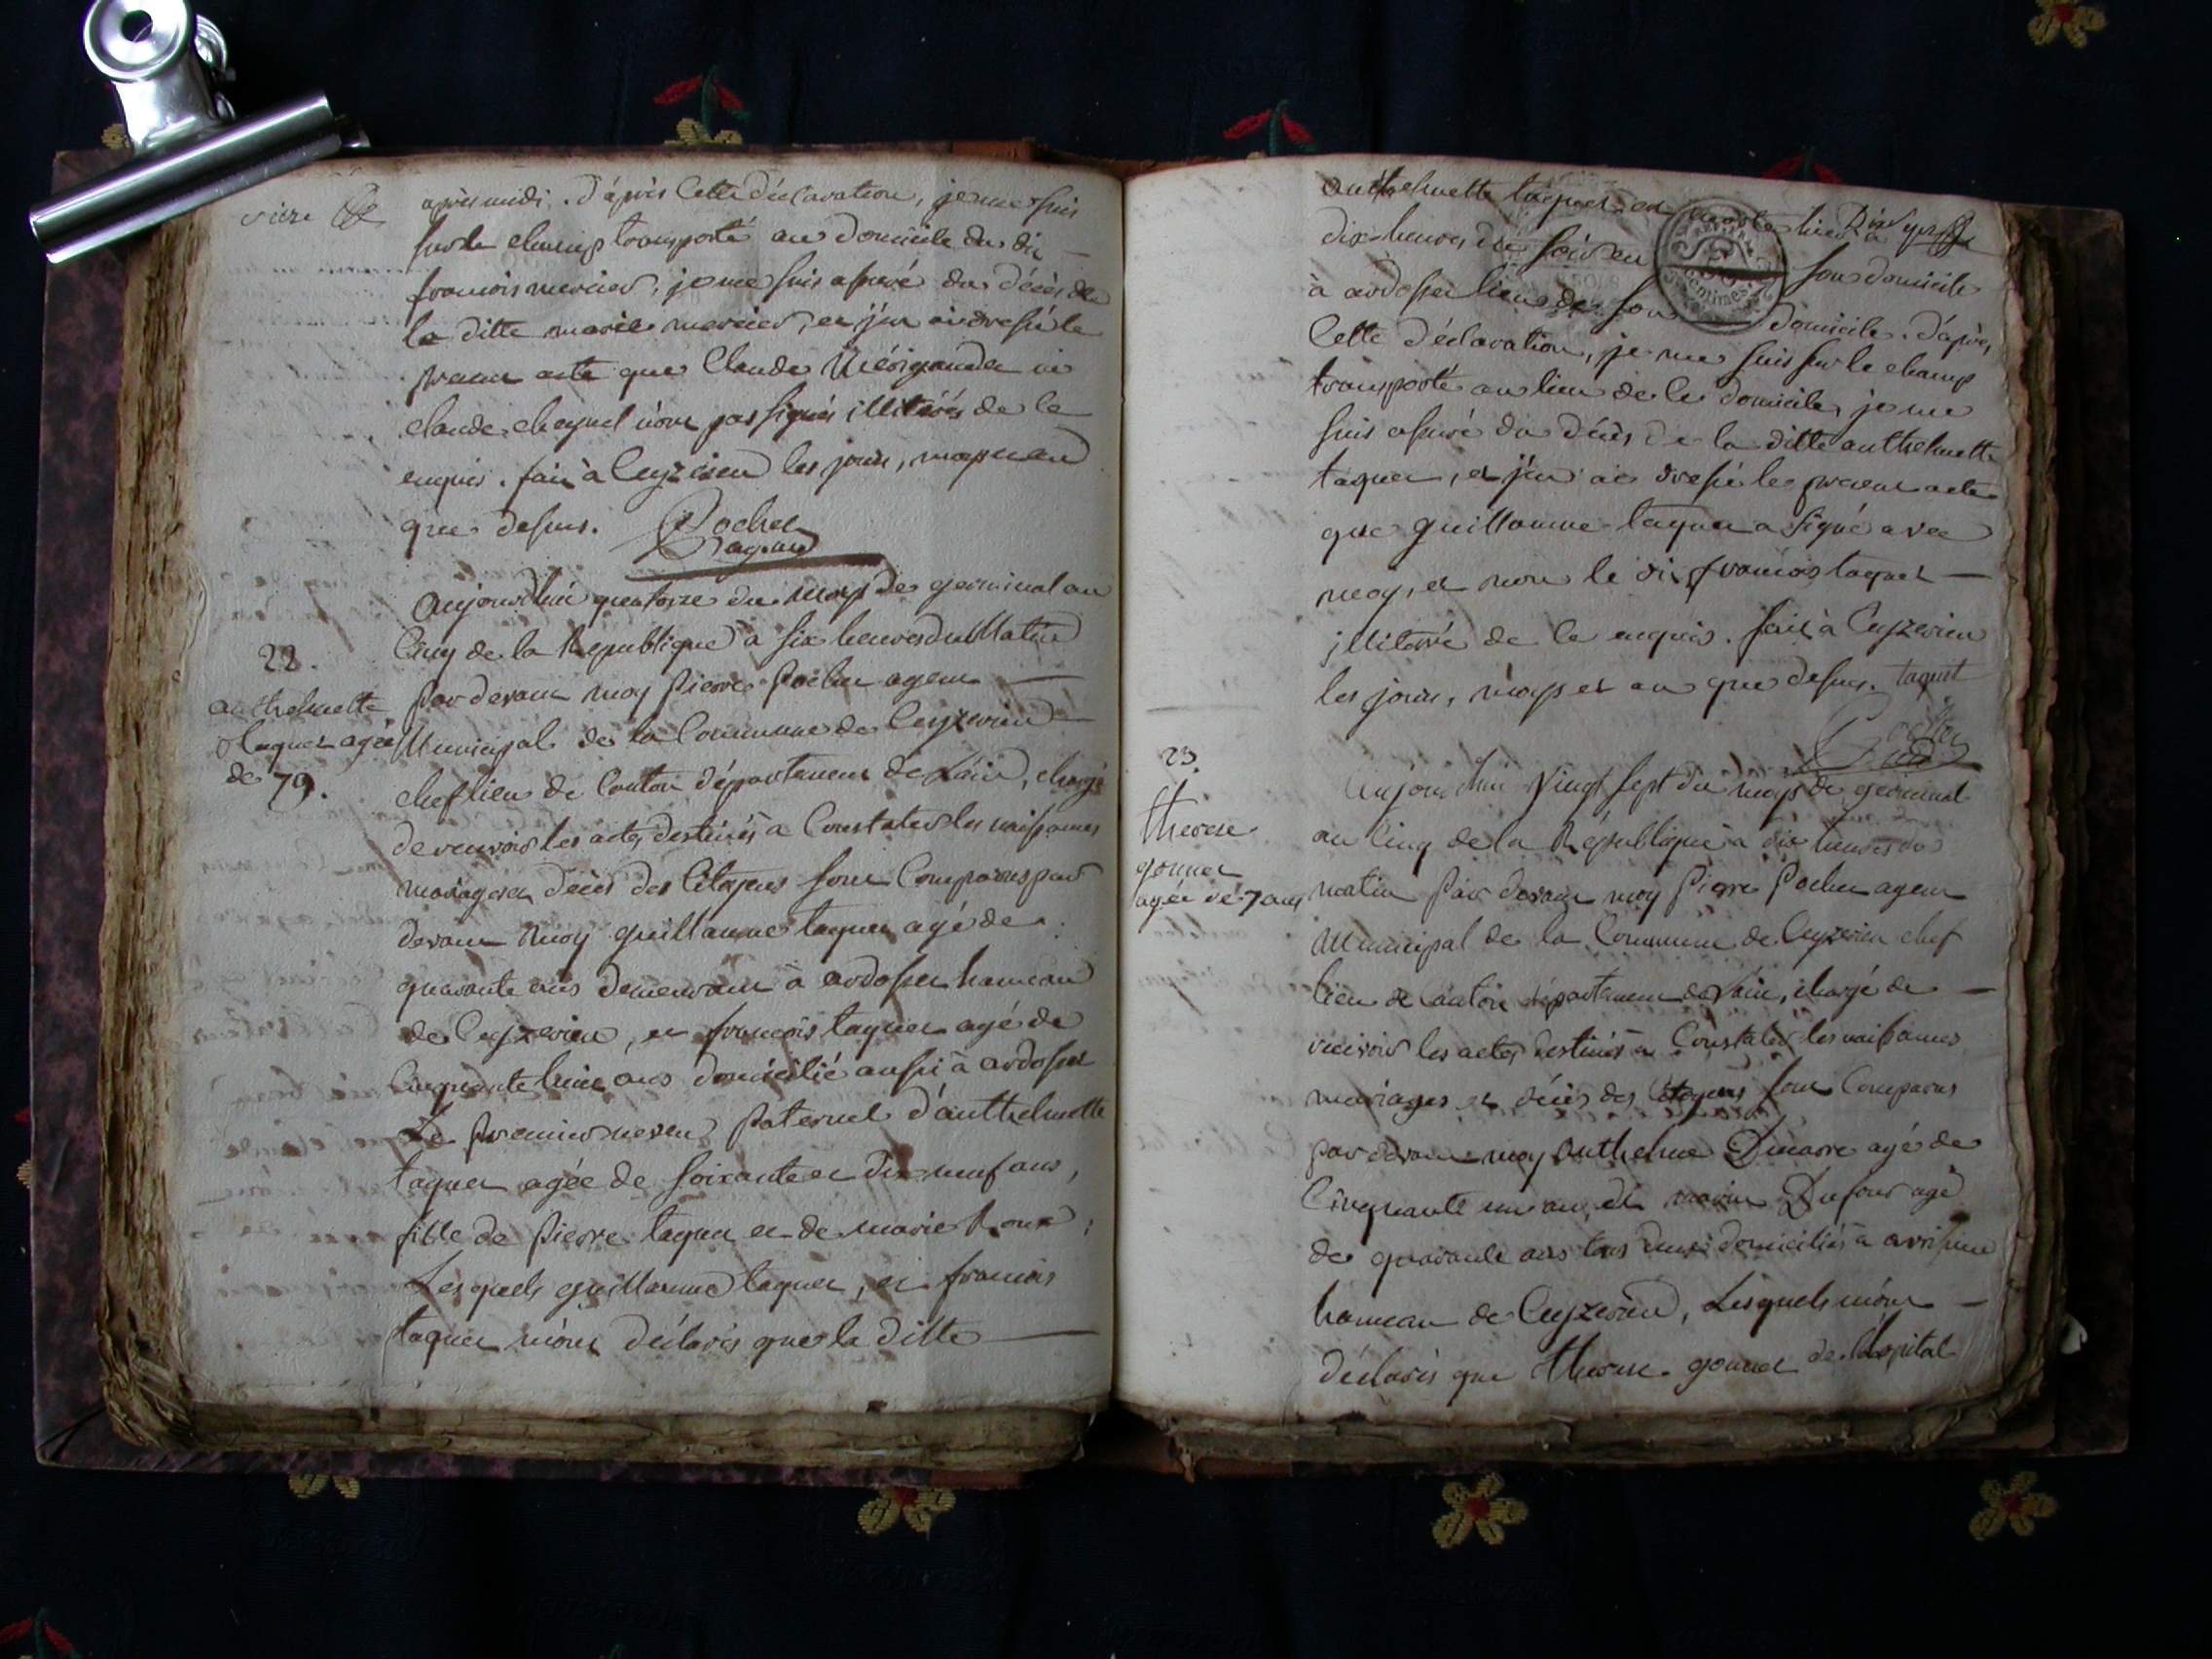 après midi. d'après Cette déclaration, je me suis
sur le champ transporté au Domicile du dit
francois mercier, je me suis assuré du décès de
la ditte marie mercier, et j'en ai dressé le
present acte que Claude Mérigander ni
claude chapuel n'ont pas signés illiterés de ce
enquis. fait à Ceyzerieu les jour, moys et an
que dessus. Pochet
agent
22.
anthelmette
taquet agée
de 79.
Aujourdhui quatorze du moys de germinal an
Cinq de la Republique à six heures du Matin
Par devant moy Pierre Pochet agent
Municipal de la Commune de Ceyzerieu
chef lieu de Canton département de Lain, chargé
de recevoir les actes destinés a Constater les naissances
mariages et décès des Citoyens sont Comparus par
devant moy guillaume taquet agé de
quarante ans demeurant à ardosset hameau
de Ceyzerieu, et francois taquet agé de
Cinquante huit ans domicilié aussi à ardosset
Le premier neveu paternel d'anthelmette
taquet agée de soixante et dix neuf ans,
fille de Pierre taquet et de marie Roux;
Lesquels guillaume taquet, et francois
taquet m'ont déclarés que la ditte
anthelmette taquet est morte hier a
dix heures du soir en son domicile
à ardosset lieu de son domicile. d'après
Cette déclaration, je me suis sur le champ
transporté au lieu de ce domicile, je me
suis assuré du décès de la ditte anthelmette
taquet, et j'en ai dressé le present acte
que guillaume taquet a signé avec
moy, et non le dit francois taquet
illiterré de ce enquis. fait à Ceyzerieu
les jour, moys et an que dessus. taquet
Pochet
23.
therese
gonnet
agée de 7 ans
Aujourdhui Vingt sept du moys de germinal
an Cinq de la République à dix heures du
matin Par devant moy Pierre Pochet agent
Municipal de la Commune de Ceyzerieu chef
lieu de Canton département de Lain, chargé de
recevoir les actes destinés a Constater les naissances
mariages et décès des Citoyens sont Comparus
par devant moy anthelme agé de
Cinquante un an, et marin Dufour agé
de quarante ans tous deux domiciliés à avrissieu
hameau de Ceyzerieu, Lesquels m'ont
déclarés que therese gonnet de l'hopital